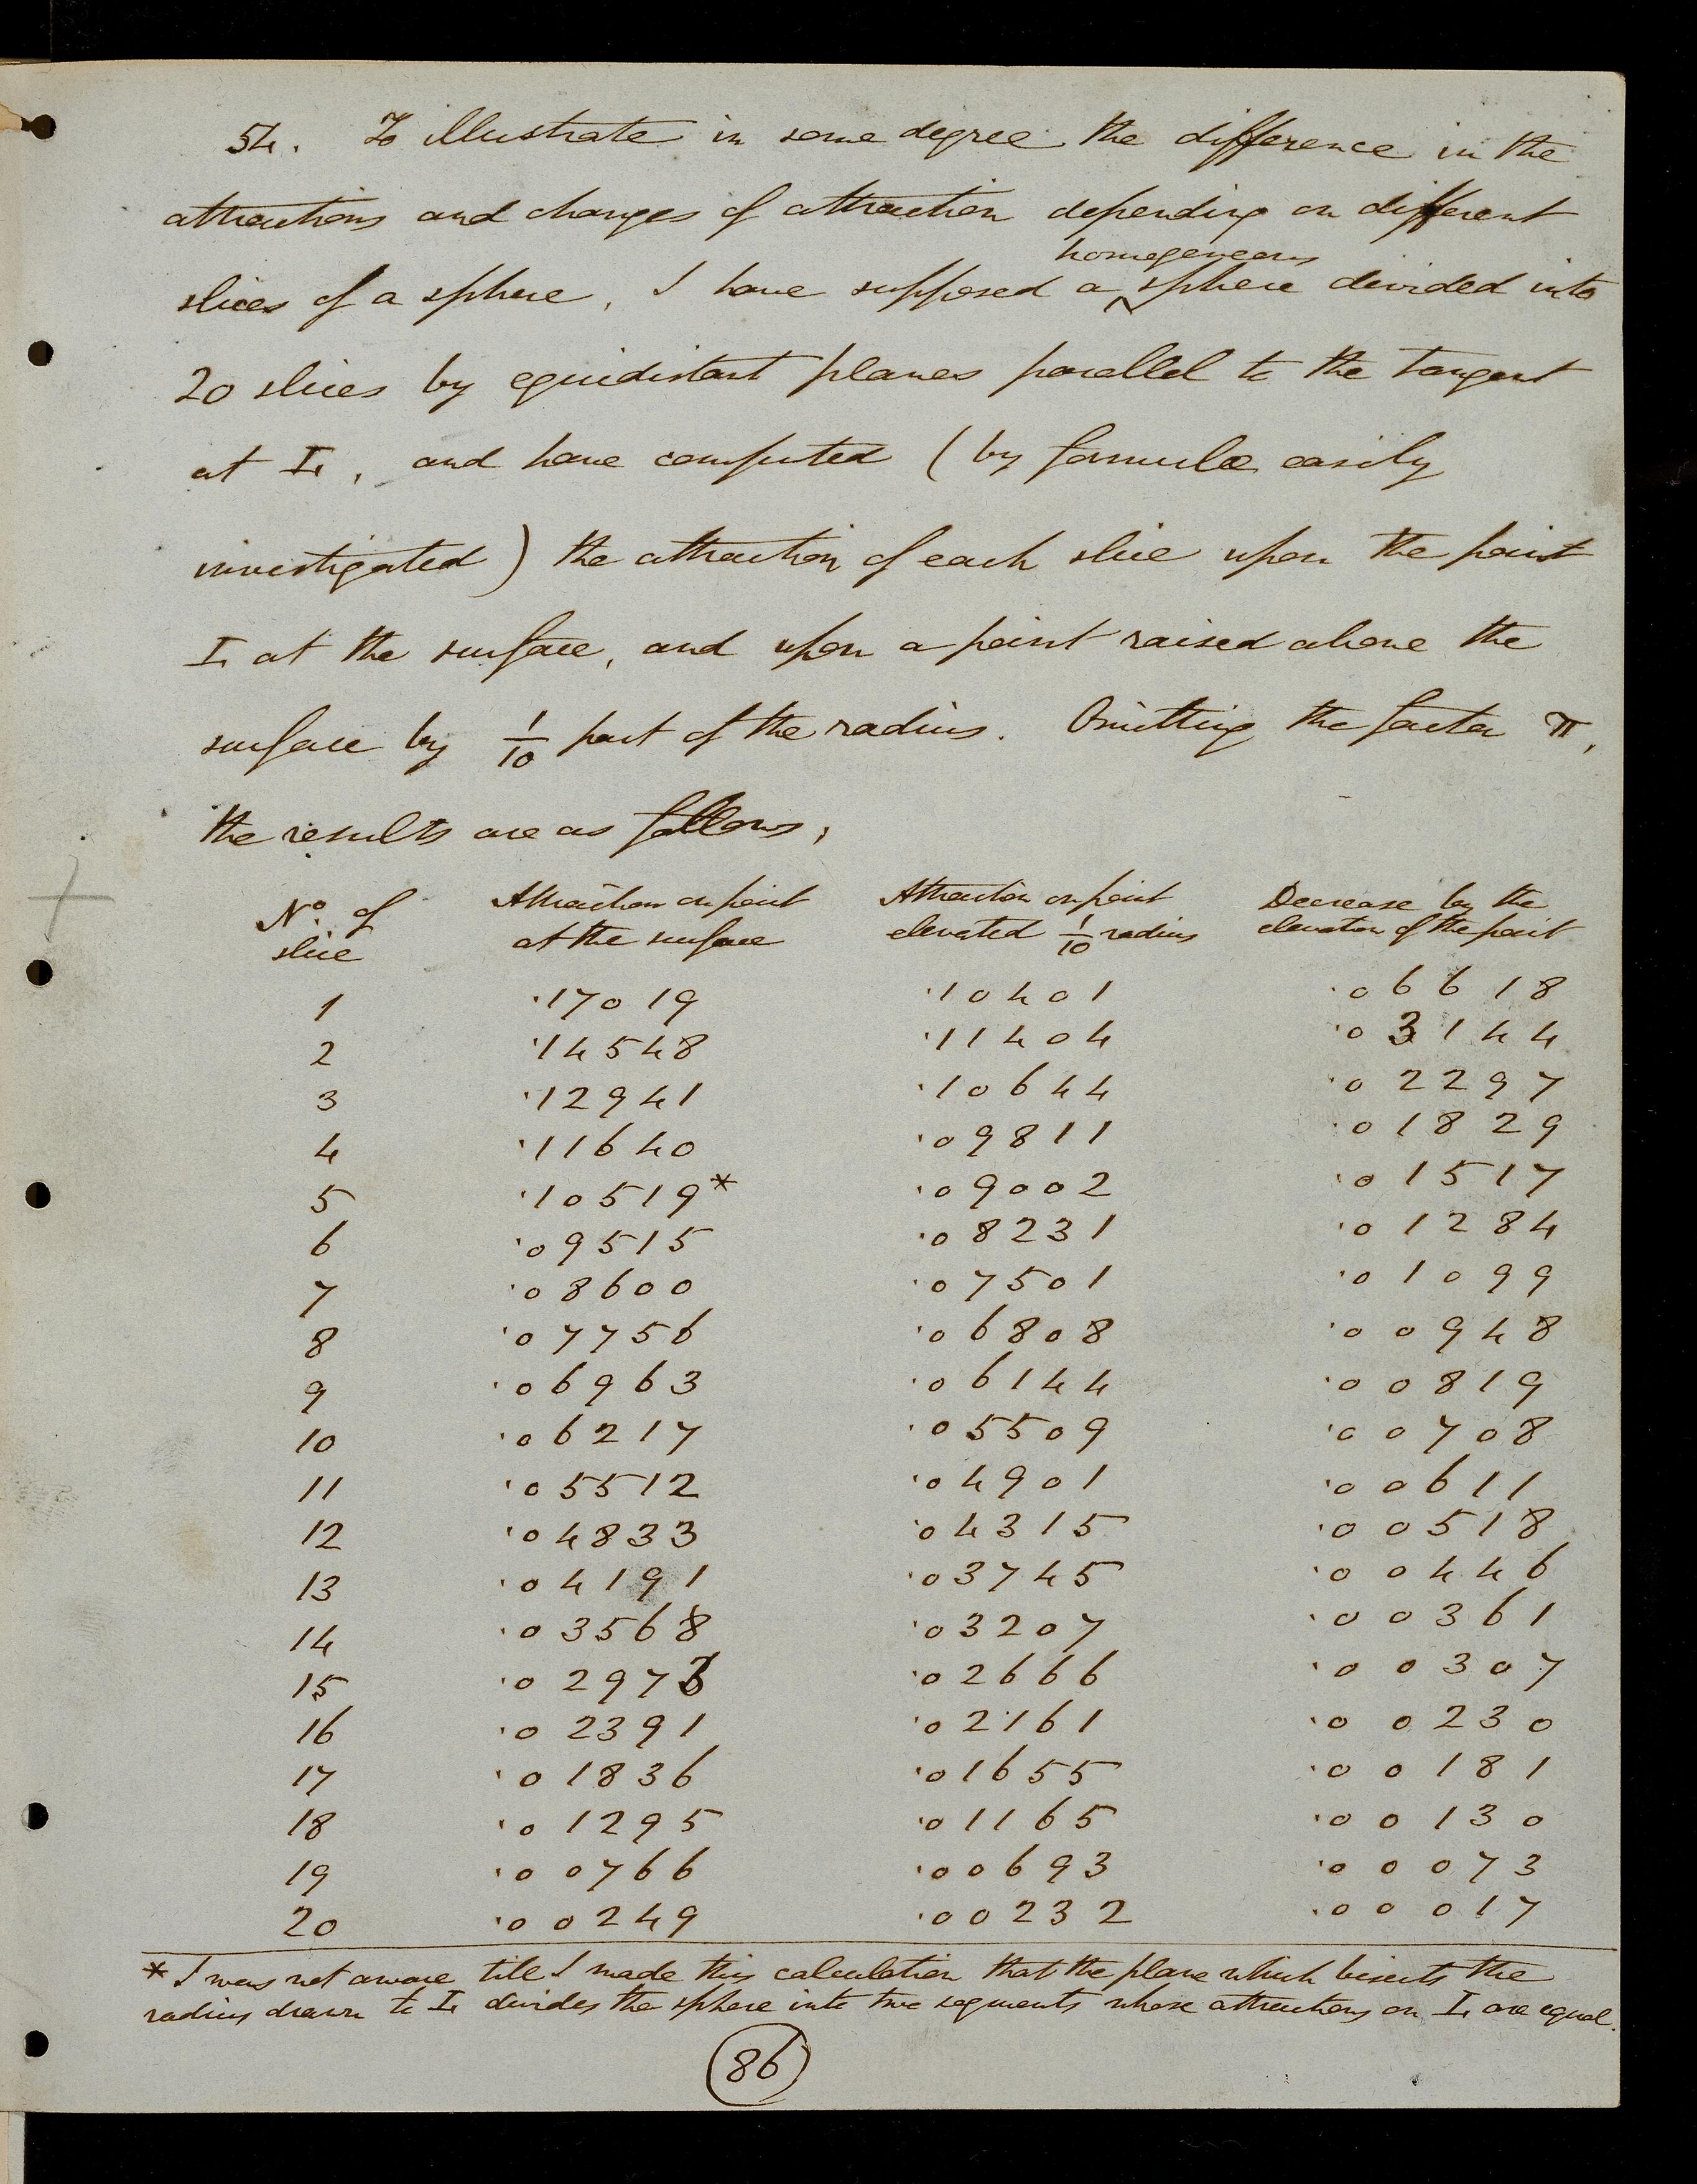 54. To illustrate in some degree the difference in the
attractions and changes of attraction depending on different
homogeneous
slices of a sphere, I have supposed a ‸ sphere divided into
20 slices by equidistant planes parallel to the tangent
at I, and have computed (by formulæ easily
investigated) the attraction of each slice upon the point
I, at the surface, and upon a point raised above the
surface by 1/10 part of the radius. Omitting the factor π,
the results are as follows,
No. of slice Attraction on point at the surface Attraction on point elevated 1/10 radius Decrease by the elevation of the point
1 ·17019 ·10401 ·06618
2 ·14548 ·11404 ·03144
3 ·12941 ·10644 ·02297
4 ·11640 ·09811 ·01829
5 ·10519* ·09002 ·01517
6 ·09515 ·08231 ·01284
7 ·08600 ·07501 ·01099
8 ·07756 ·06808 ·00948
9 ·06963 ·06144 ·00819
10 ·06217 ·05509 ·00708
11 ·05512 ·04901 ·00611
12 ·04833 ·04315 ·00518
13 ·04191 ·03745 ·00446
14 ·03568 ·03207 ·00361
15 ·02973 ·02666 ·00307
16 ·02391 ·02161 ·00230
17 ·01836 ·01655 ·00181
18 ·01295 ·01165 ·00130
19 ·00766 ·00693 ·00073
20 ·00249 ·00232 ·00017
* I was not aware till I made this calculation that the plane which bisects the
radius drawn to I, divides the sphere into two segments whose attractions on I, are equal.
86